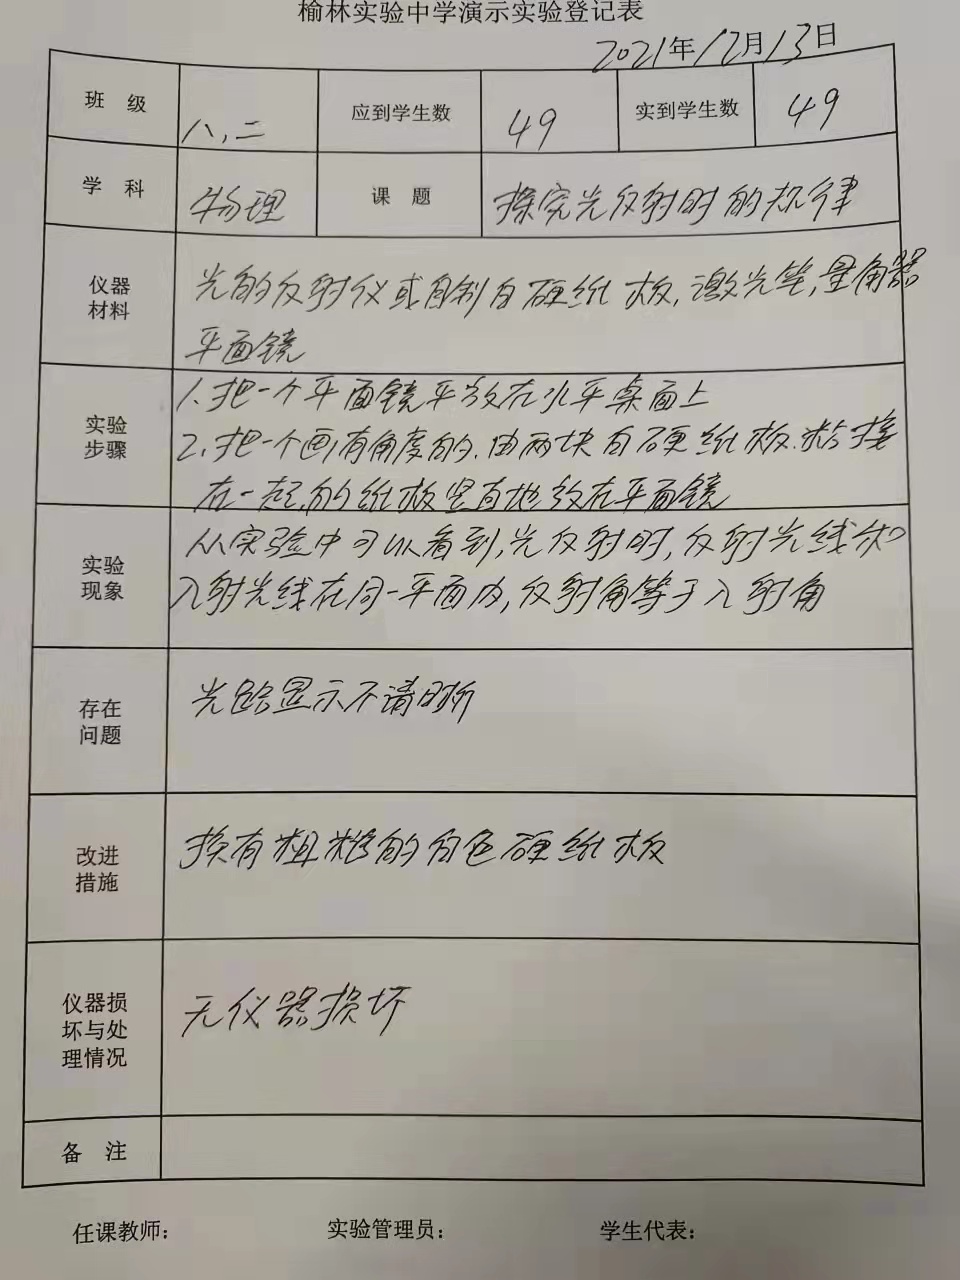 榆林实验中学演示实验登记表
2021年12月13日
班 级 八,二 应到学生数 49 实到学生数 49
学 科 物理 课 题 探究光反射时的规律
仪器材料 光的反射仪或自制白硬纸板,激光笔,量角器
平面镜
实验步骤 1.把一个平面镜平放在水平桌面上
2.把一个画有角度的.由两块白硬纸板.粘接
在一起.的纸板竖直地放在平面镜
实验现象 从实验中可以看到,光反射时,反射光线和
入射光线在同一平面内,反射角等于入射角
存在问题 光路显示不清晰
改进措施 换有粗糙的白色硬纸板
仪器损坏与处理情况 无仪器损坏
备 注
任课教师： 实验管理员： 学生代表：